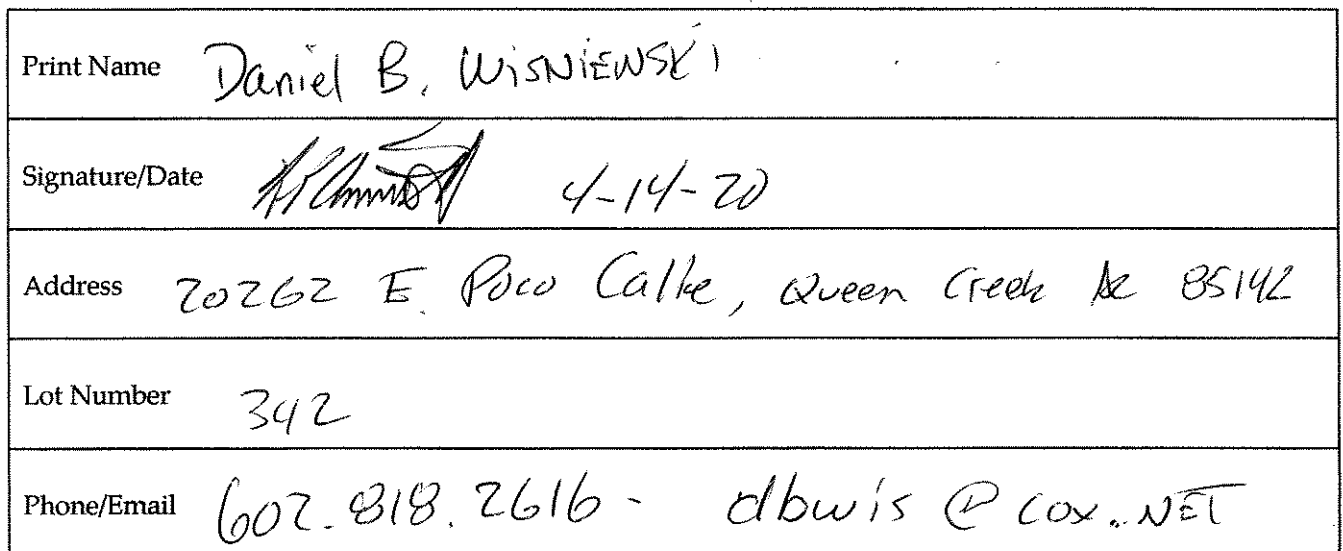 Print Name Daniel B. WisNiEWSKi
Signature/Date 4-14-20
Address 20262 E. Poco Calle, Queen Creek Az 85142
Lot Number 342
Phone/Email 602.818.2616 - dbwis @ cox.NET